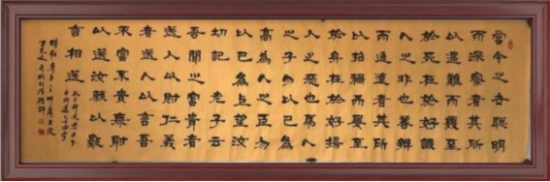 當今之世聰明
而深察者其所
以遇難而幾至
於死在於好譏
人之非也善辯
而通達者其所
以招禍而屢至
於身在於好揚
人之惡也為人
之子勿以己為
高為人之臣勿
以己為上望汝
切記 老子云
吾聞之富貴者
送人以財仁義
者送人以言吾
不富不貴無財
以送汝願以數
言相送